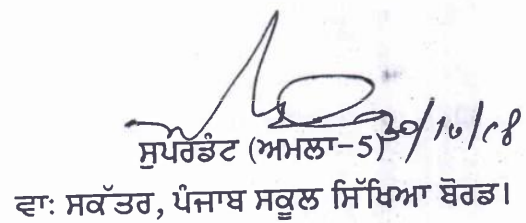 ਸੁਪਰਡੰਟ (ਅਮਲਾ-5)
ਵਾ: ਸਕੱਤਰ, ਪੰਜਾਬ ਸਕੂਲ ਸਿੱਖਿਆ ਬੋਰਡ।